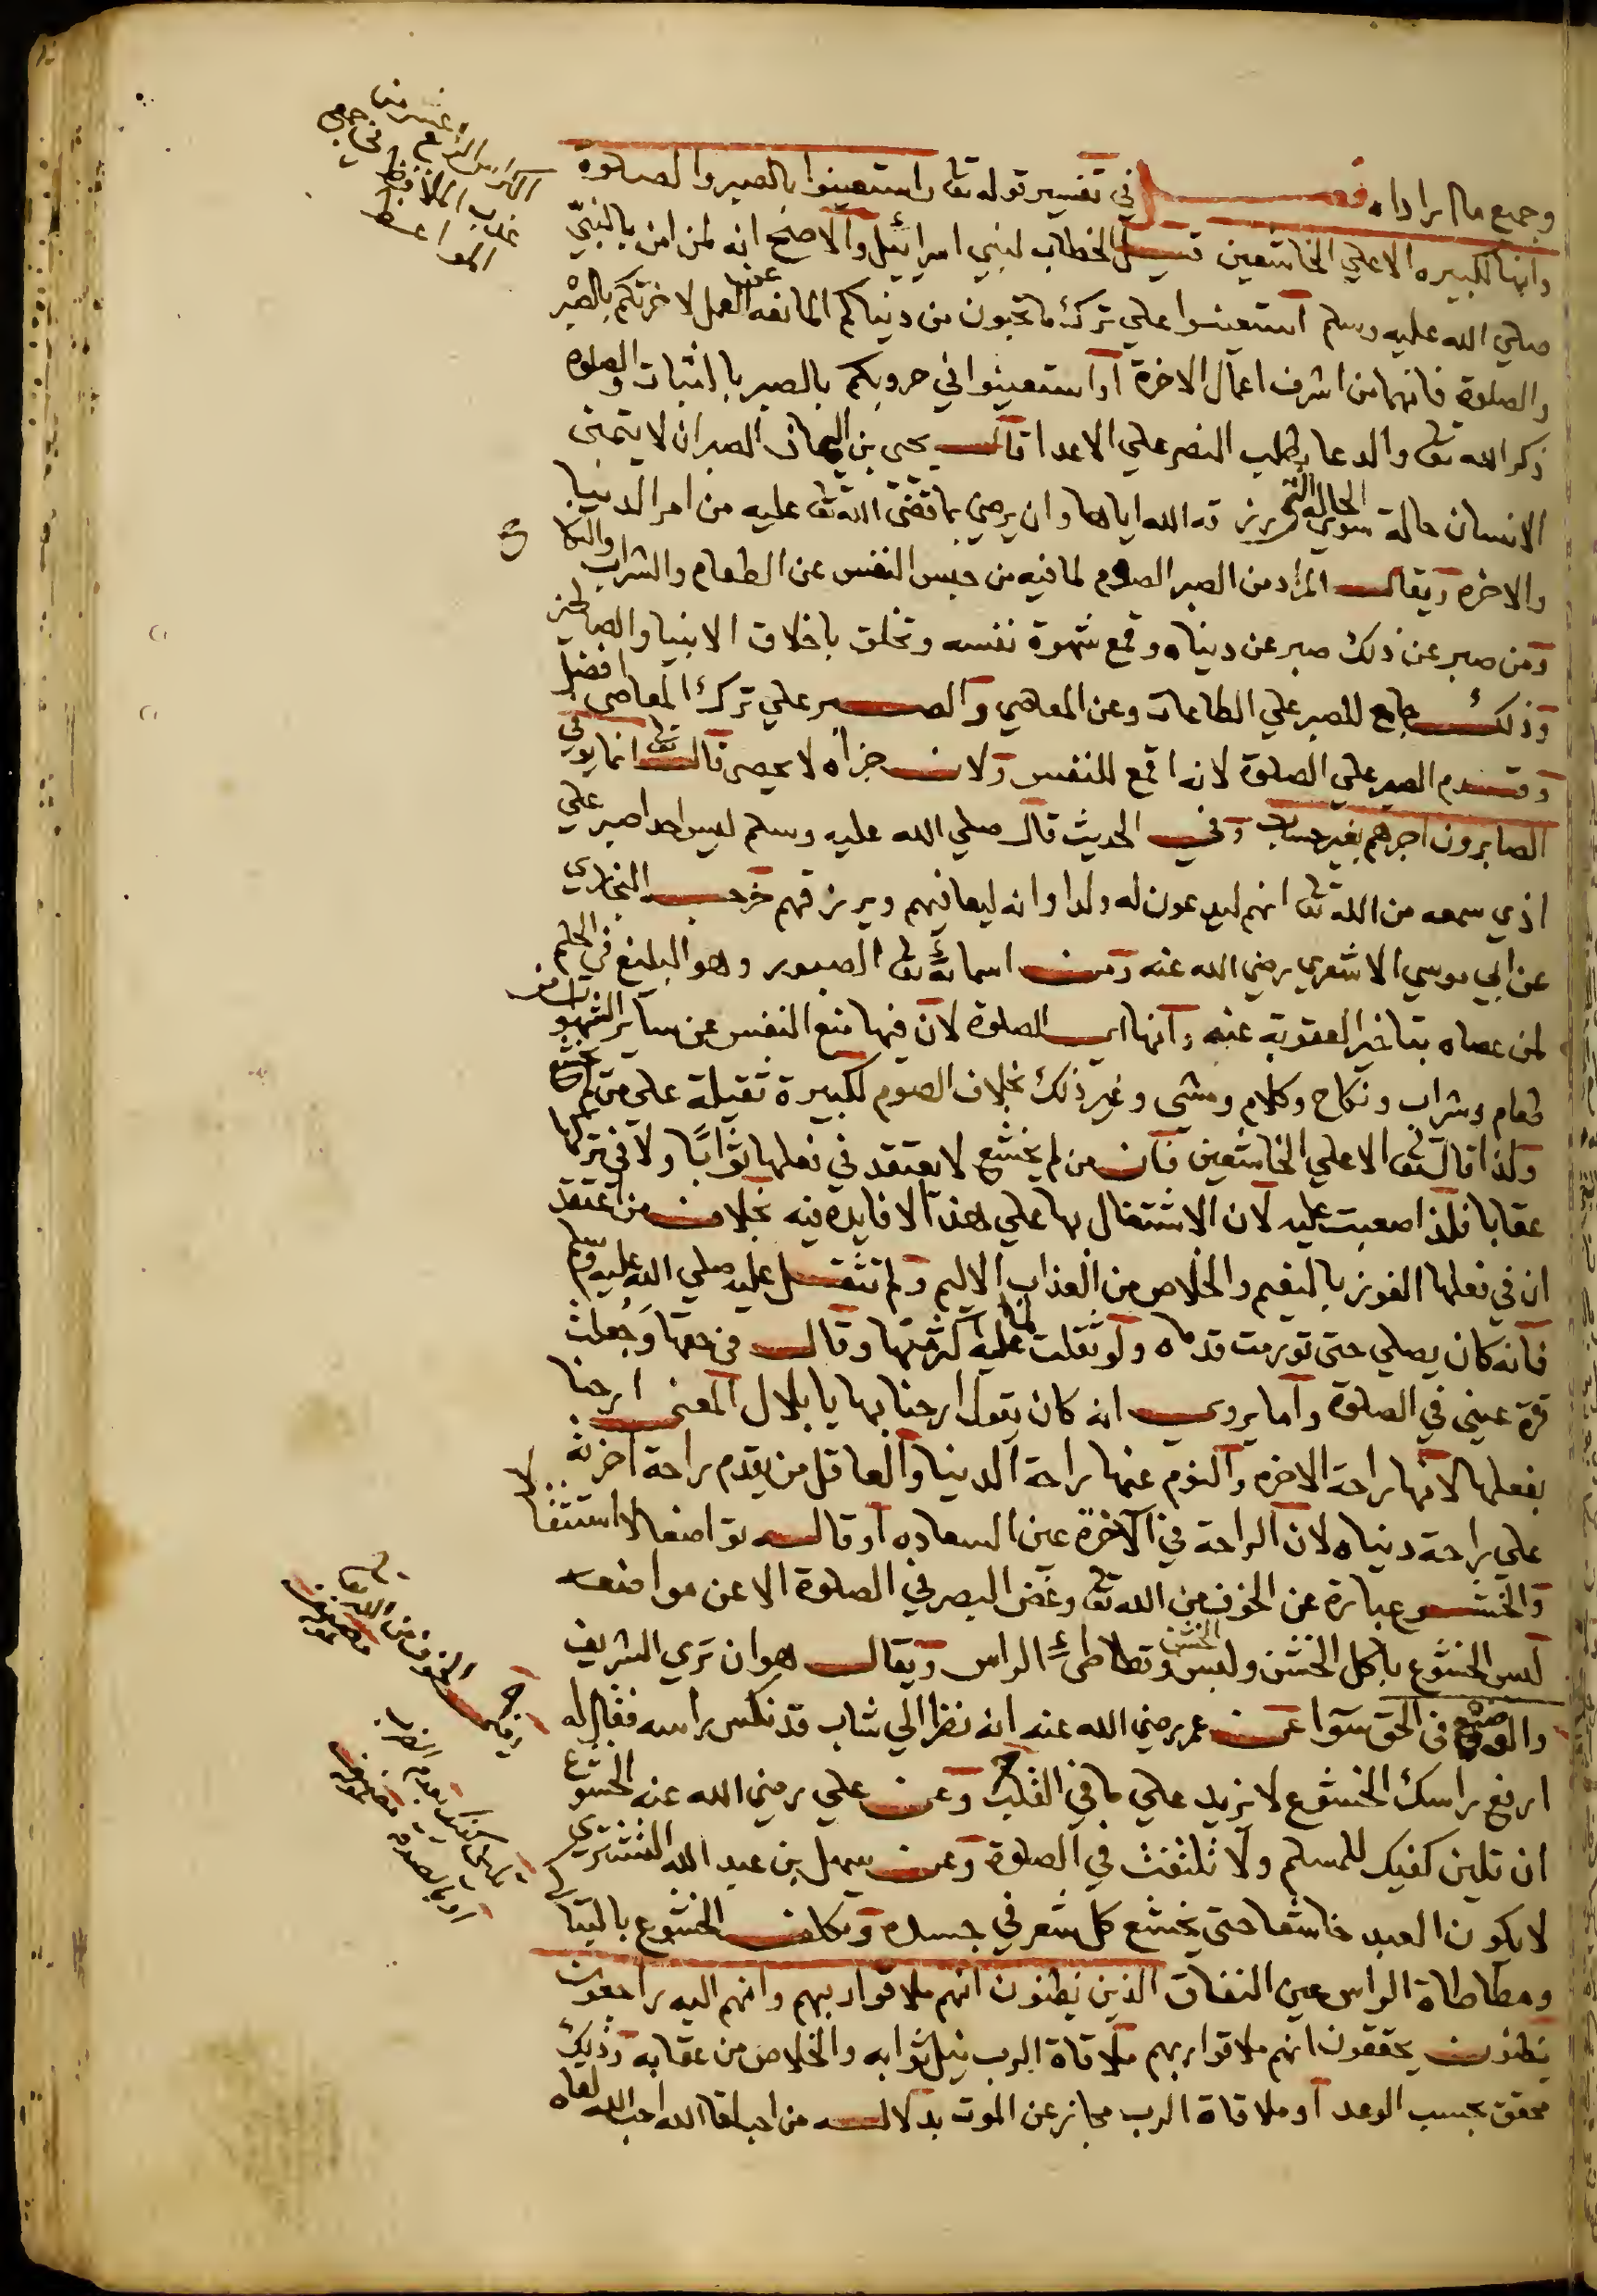 وجميع ما ارداه فصل في تفسير قوله تعا واستعينوا بالصبر والصلوة
وانها لكبيره الا علي الخاشعين قيل الخطاب لبني اسرائيل والاصح انه لمن امن بالنبي
صلي الله عليه وسلم استعينوا علي ترك ما تحبون من دنياكم المانعه عن العمل لاخرتكم بالصبر
والصلوة فانهما من اشرف اعمال الاخرة او استعينوا في حروبكم بالصبر بالثبات والصلوه
ذكر الله تعا والدعا بطلب النصر علي الاعدا قال يحيى بن اليمان الصبر ان لا يتمنى
الانسان حالة سوي الحالة التي رزقه الله اياها وان يرضي بما قضى الله تعا عليه من امر الدنيا
والاخره ويقال المراد من الصبر الصوم لما فيه من حبس النفس عن الطعام والشراب والنكا ح
ومن صبر عن ذلك صبر عن دنياه وقمع شهوة نفسه وتخلق باخلاق الانبيا والصالحين
وذلك جامع للصبر علي الطاعات وعن المعاصي والصبر علي ترك المعاصي افضل
وقدم الصبر علي الصلوة لانه اقمع للنفس ولان جزاه لا يحصر قال تعا انما يوفي
الصابرون اجرهم بغير حساب وفي الحديث قال صلي الله عليه وسلم ليس احد اصبر علي
اذي سمعه من الله تعا انهم ليدعون له ولدا وانه ليعافيهم ويرزقهم خرجه البخاري
عن ابي موسي الاشعري رضي الله عنه ومن اسمائه تعا الصبور وهو البليغ في الحلم
لمن عصاه بتاخير العقوبة عنه وانها اي الصلوة لان فيها منع النفس عن ساير الشهوات من
طعام وشراب ونكاح وكلام ومشي وغير ذلك بخلاف الصوم لكبيرة ثقيلة علي من لم يخشع
ولذا قال تعا الا علي الخاشعين فان من لم يخشع لا يعتقد في فعلها ثوابا ولا في تركها
عقابا فلذا صعبت عليه لان الاشتغال بها علي هذا لا فايده فيه بخلاف من اعتقد
ان في فعلها الفوز بالنعيم والخلاص من العذاب الاليم ولم تثقل عليه صلي الله عليه وسلم
فانه كان يصلي حتى تورمت قدماه ولو ثقلت عليه لما كثر منها وقال في حقها وجعلت
قرة عيني في الصلوة واما يروي انه كان يقول ارحنا بها يا بلال المعنى ارحنا
بفعلها لانها راحة الاخره والنوم عنها راحة الدنيا والعاقل من يقدم راحة اخرته
علي راحة دنياه لان الراحة في الآخرة عين السعاده او قاله تواضعا لا استثقا لا
والخشوع عبارة عن الخوف من الله تعا وغض البصر في الصلوة الا عن مواضعه
ليس الخشوع باكل الخشن ولبس الخشن وتطاطئ الراس ويقال هو ان تري الشريف
والوضيع في الحق سوا عن عمر رضي الله عنه انه نظر الي شاب قد نكس راسه فقال له
ارفع راسك الخشوع لا يزيد علي ما في القلب وعن علي رضي الله عنه الخشوع
ان تلين كفيك للمسلم ولا تلتفت في الصلوة وعن سهل بن عبد الله التستري
لا يكون العبد خاشعا حتى يخشع كل شعر في جسده وتكلف الخشوع بالتباكي
ومطاطاة الراس عين النفاق الذين يظنون انهم ملاقوا ربهم وانهم اليه راجعون
يظنون يحققون انهم ملاقوا ربهم ملاقاة الرب نيل ثوابه والخلاص من عقابه وذلك
محقق بحسب الوعد او ملاقاة الرب مجاز عن الموت بدلالة من احب لقا الله احب الله لقاه